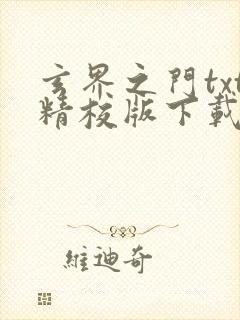 玄界之門txt
精校版下載
維迪奇